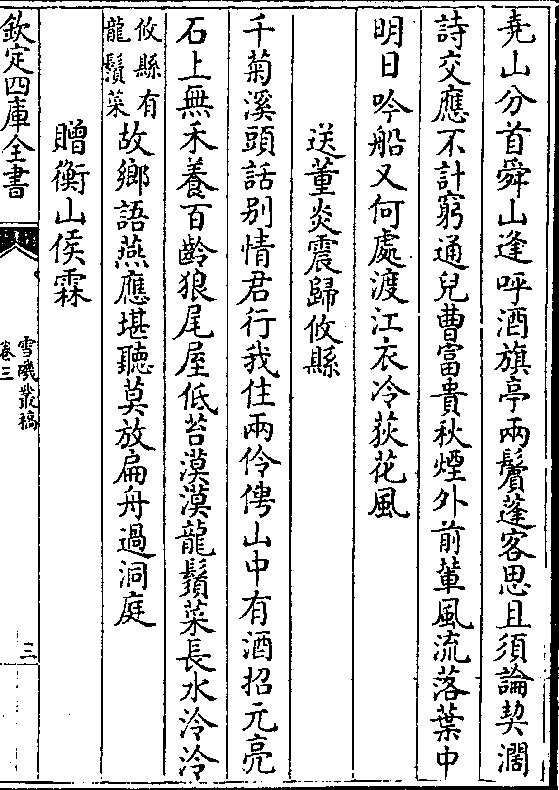 堯山分首舜山逢呼酒旗亭兩鬢蓬客思且須論契濶
詩交應不計窮通兒曹富貴秋煙外前輩風流落葉中
明日吟船又何處渡江衣冷荻花風
送董炎震歸攸縣
千菊溪頭話别情君行我住兩伶俜山中有酒招元亮
石上無禾養百齡狼尾屋低苔漠漠龍鬚菜長水泠泠
攸縣有
龍鬚菜
故鄉語燕應堪聽莫放扁舟過洞庭
贈衡山侯霖
欽定四庫全書
雪磯叢稿
卷三
三